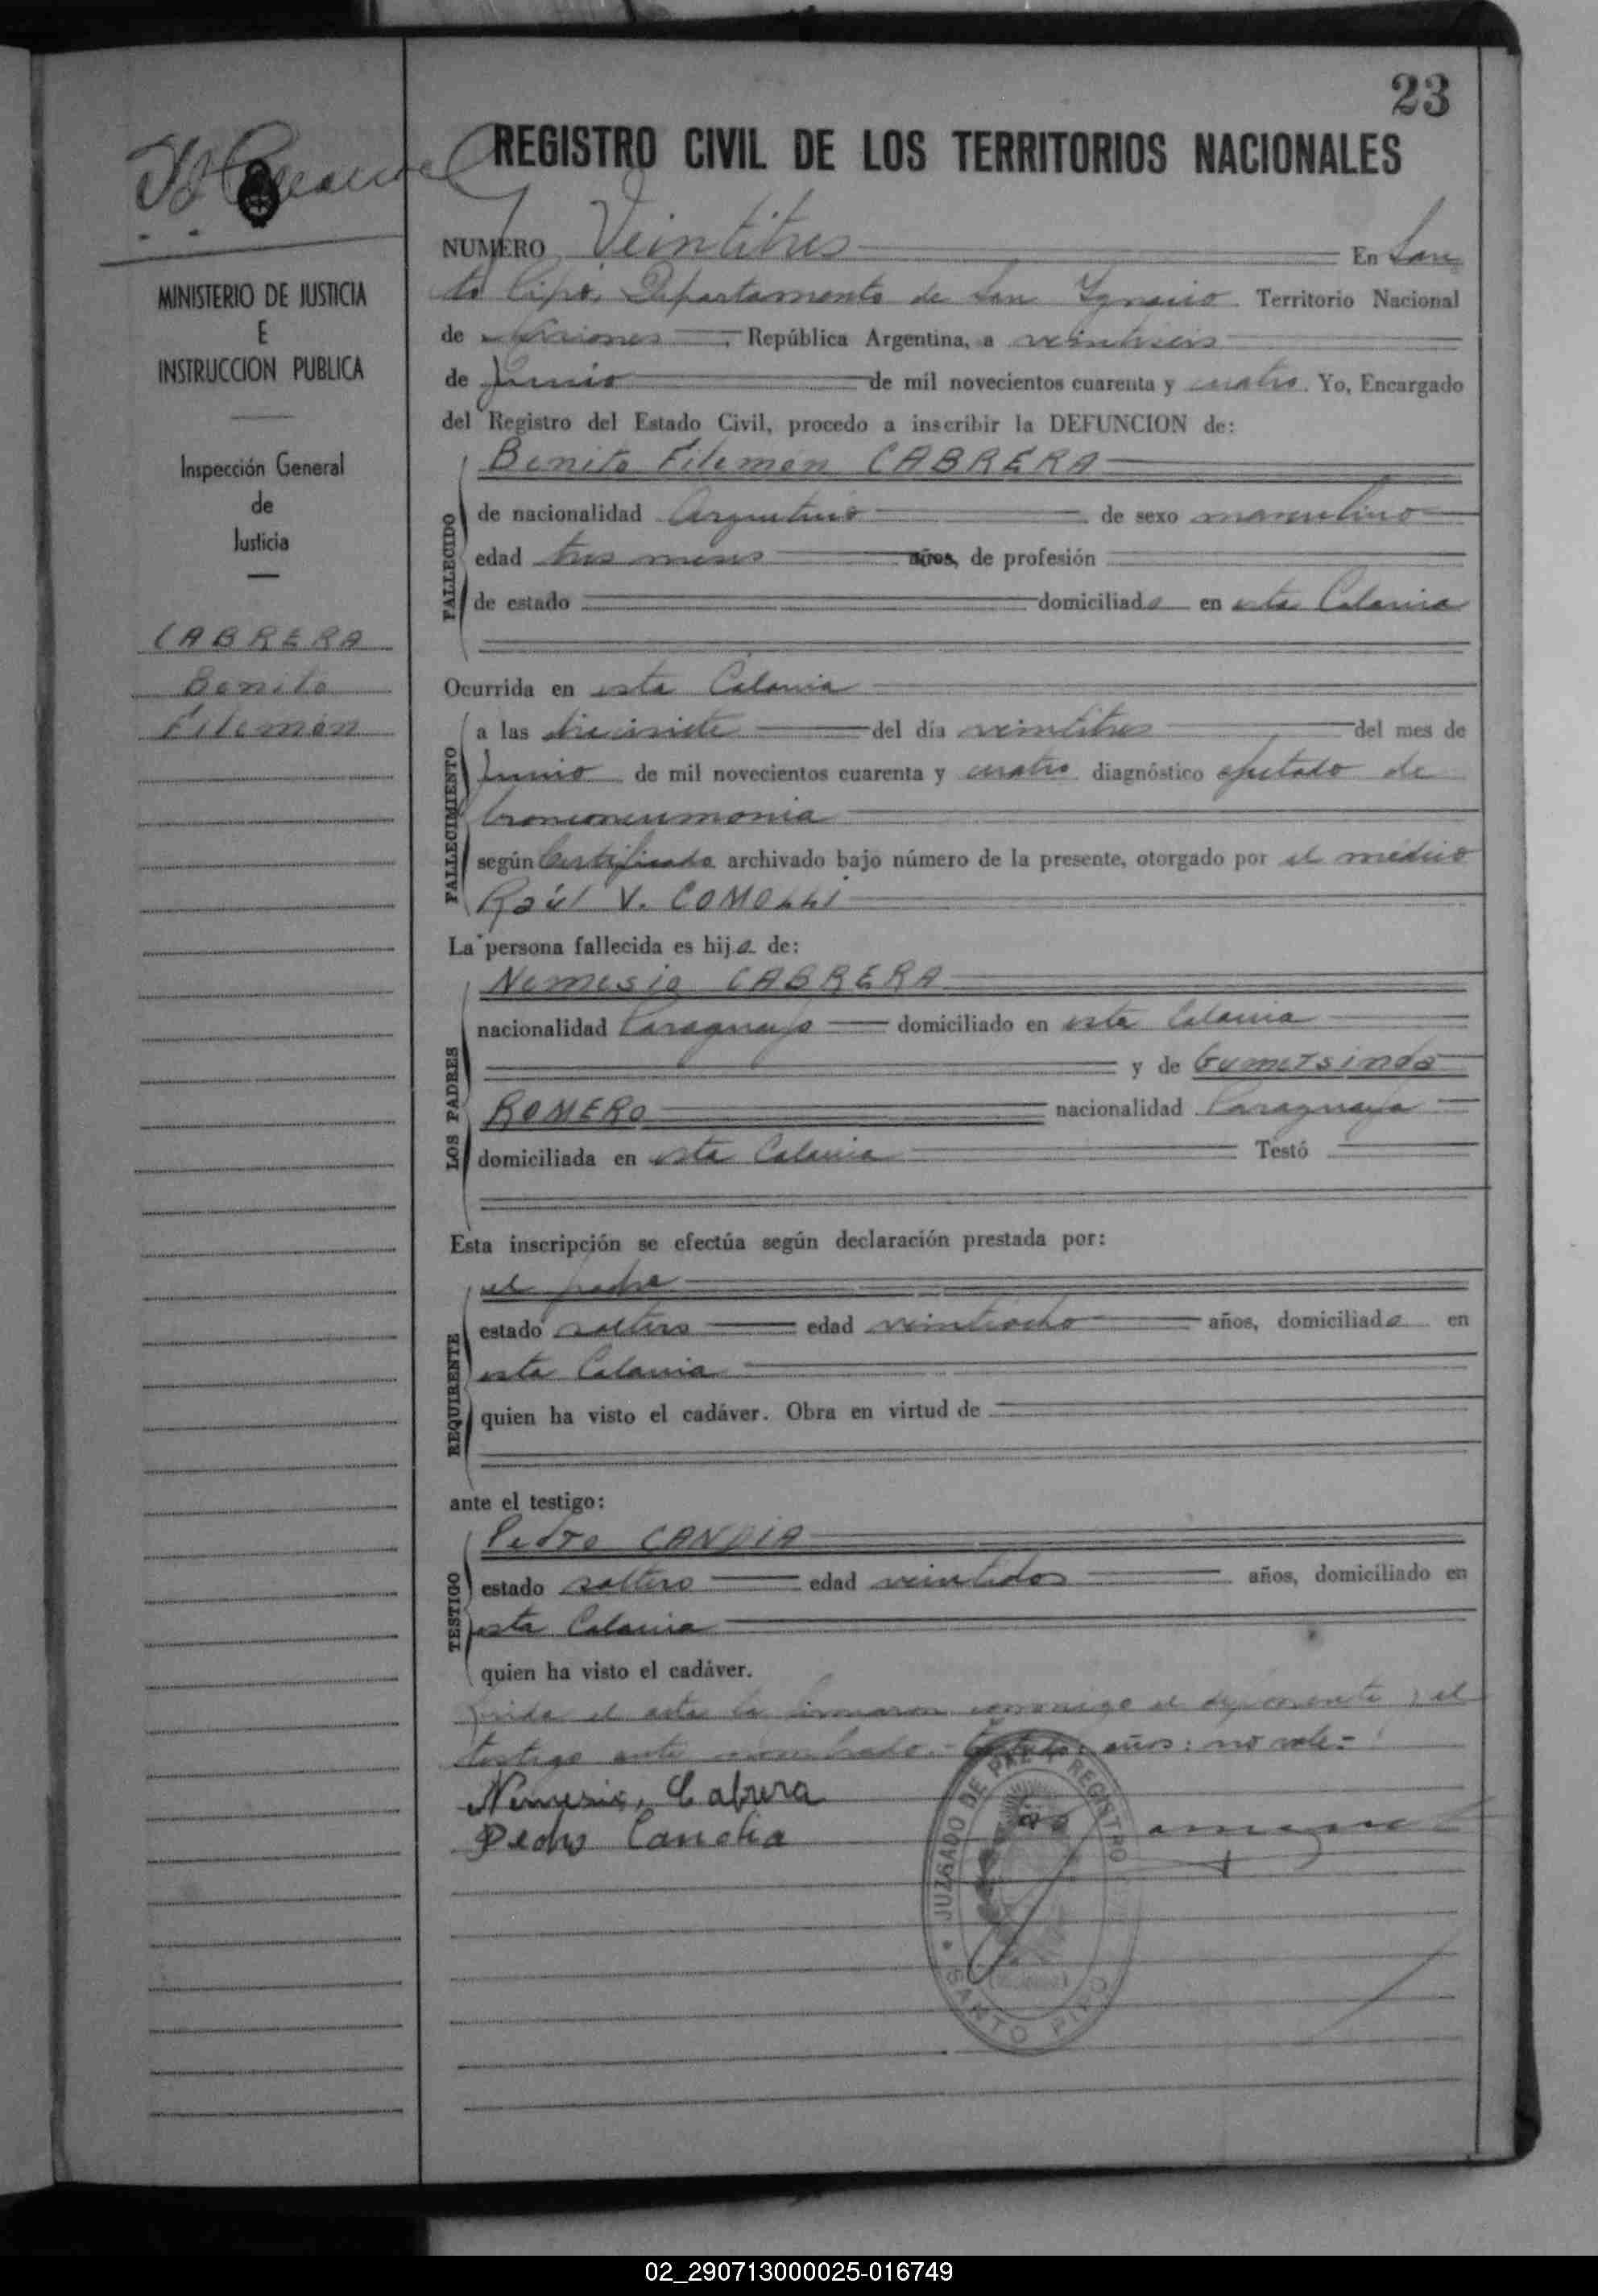 23
REGISTRO CIVIL DE LOS TERRITORIOS NACIONALES
MINISTERIO DE JUSTICIA
E
INSTRUCCION PUBLICA
Inspección General
de
Justicia
CABRERA
Benito
Filemón
NUMERO Veintitres En San
to Pipó, Departamento de San Ignacio Territorio Nacional
de Misiones República Argentina, a veintiseis
de Junio de mil novecientos cuarenta y cuatro. Yo, Encargado
del Registro del Estado Civil, procedo a inscribir la DEFUNCION de:
Benito Filemón CABRERA
FALLECIDO
de nacionalidad Argentino de sexo masculino
edad tres meses años, de profesión
de estado domiciliado en esta Colonia
Ocurrida en esta Colonia
FALLECIMIENTO
a las diecisiete del día veintitres del mes de
Junio de mil novecientos cuarenta y cuatro diagnóstico afectado de
bronconeumonia
según Certificado archivado bajo número de la presente, otorgado por el médico
Raúl V. COMOLLI
La persona fallecida es hijo de:
LOS PADRES
Nemesio CABRERA
nacionalidad Paraguayo domiciliado en esta Colonia
y de Gumersinda
ROMERO nacionalidad Paraguaya
domiciliada en esta Colonia Testó
Esta inscripción se efectúa según declaración prestada por:
REQUIRENTE
el padre
estado soltero edad veintiocho años, domiciliado en
esta Colonia
quien ha visto el cadáver. Obra en virtud de
ante el testigo:
TESTIGO
Pedro CANDIA
estado soltero edad veintidos años, domiciliado en
esta Colonia
quien ha visto el cadáver.
Leida el acta la firmaron conmigo el deponente y el
testigo ante nombrado.- Testado: años: no vale.-
Nemesio, Cabrera
Pedro Candia
JUZGADO DE PAZ Y REGISTRO
SANTO PIPO
02_290713000025-016749